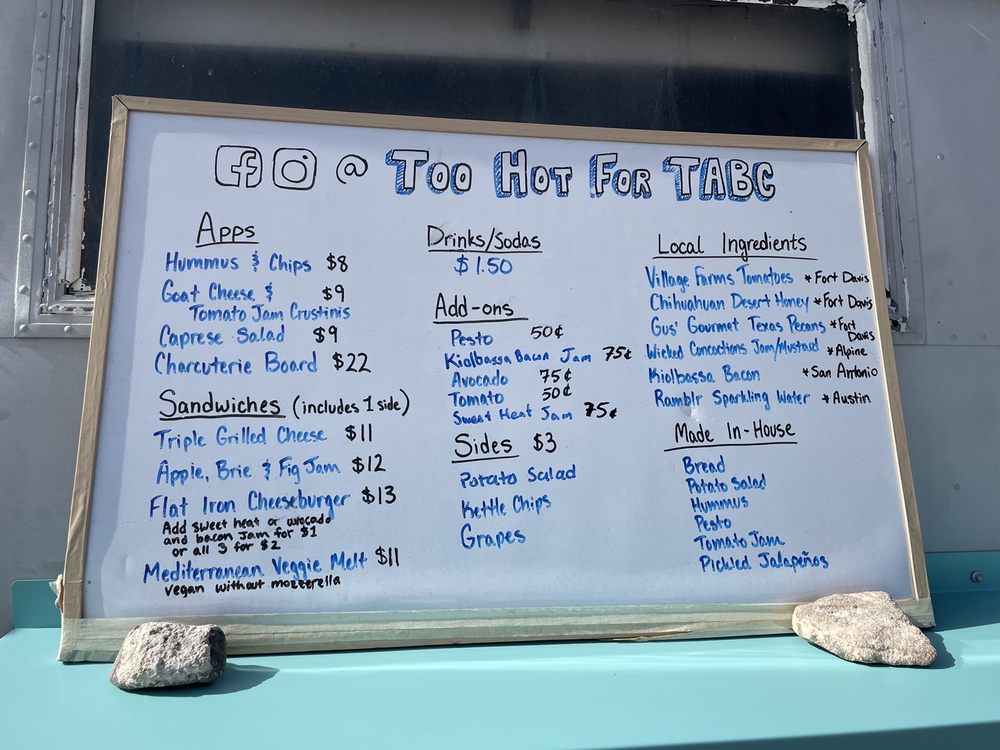 @ Too Hot For TABC
Apps
Hummus & Chips $8
Goat Cheese & $9
Tomato Jam Crustinis
Caprese Salad $9
Charcuterie Board $22
Sandwiches (includes 1 side)
Triple Grilled Cheese $11
Apple, Brie & Fig Jam $12
Flat Iron Cheeseburger $13
Add sweet heat or avocado
and bacon jam for $1
or all 3 for $2
Mediterranean Veggie Melt $11
vegan without mozzerella
Drinks/Sodas
$1.50
Add-ons
Pesto 50¢
Kiolbassa Bacon Jam 75¢
Avocado 75¢
Tomato 50¢
Sweet Heat Jam 75¢
Sides $3
Potato Salad
Kettle Chips
Grapes
Local Ingredients
Village Farms Tomatoes *Fort Davis
Chihuahuan Desert Honey *Fort Davis
Gus' Gourmet Texas Pecans *Fort
Davis
Wicked Concoctions Jam/Mustard *Alpine
Kiolbassa Bacon *San Antonio
Ramblr Sparkling Water *Austin
Made In-House
Bread
Potato Salad
Hummus
Pesto
Tomato Jam
Pickled Jalapeños